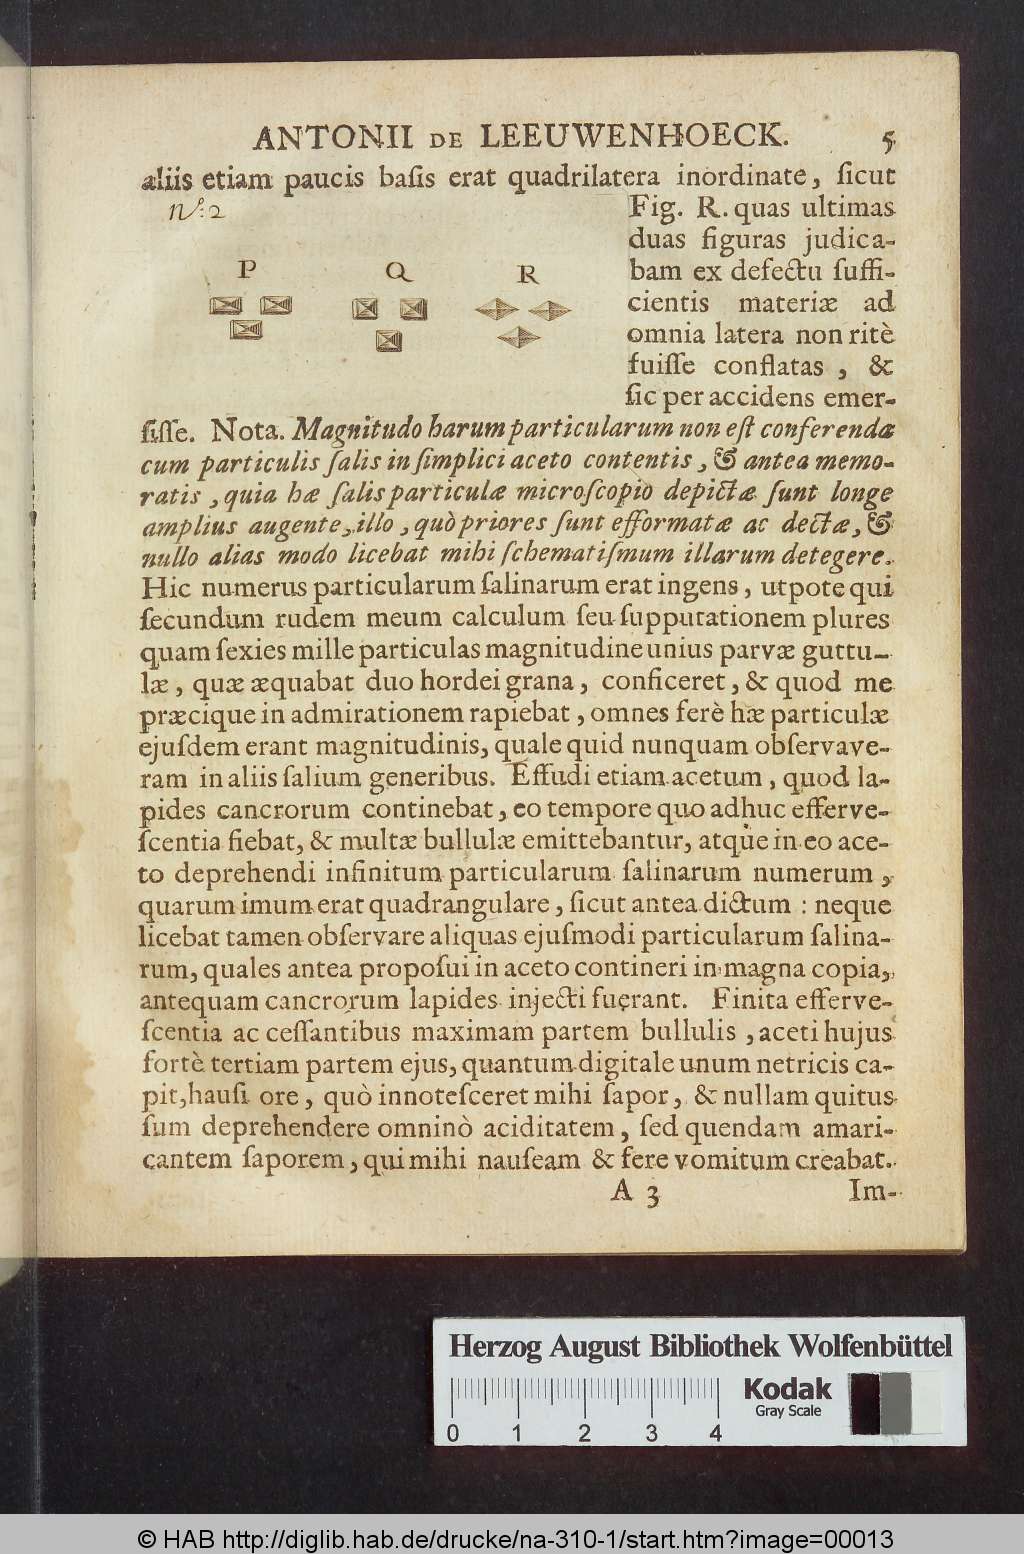 ANTONII DE LEEUWENHOECK. 5
aliis etiam paucis baſis erat quadrilatera inordinate, ſicut
N.º 2
P Q R
Fig. R. quas ultimas
duas figuras judica-
bam ex defectu ſuffi-
cientis materiæ ad
omnia latera non ritè
fuiſſe conflatas, &
ſic per accidens emer-
ſiſſe. Nota. Magnitudo harum particularum non eſt conferenda
cum particulis ſalis in ſimplici aceto contentis, & antea memo-
ratis, quia hæ ſalis particulæ microſcopio depictæ ſunt longe
amplius augente, illo, quò priores ſunt efformatæ ac dectæ, &
nullo alias modo licebat mihi ſchematiſmum illarum detegere.
Hic numerus particularum ſalinarum erat ingens, utpote qui
ſecundum rudem meum calculum ſeu ſupputationem plures
quam ſexies mille particulas magnitudine unius parvæ guttu-
læ, quæ æquabat duo hordei grana, conficeret, & quod me
præcique in admirationem rapiebat, omnes ferè hæ particulæ
ejuſdem erant magnitudinis, quale quid nunquam obſervave-
ram in aliis ſalium generibus. Effudi etiam acetum, quod la-
pides cancrorum continebat, eo tempore quo adhuc efferve-
ſcentia fiebat, & multæ bullulæ emittebantur, atque in eo ace-
to deprehendi infinitum particularum ſalinarum numerum,
quarum imum erat quadrangulare, ſicut antea dictum : neque
licebat tamen obſervare aliquas ejuſmodi particularum ſalina-
rum, quales antea propoſui in aceto contineri in magna copia,
antequam cancrorum lapides injecti fuerant. Finita efferve-
ſcentia ac ceſſantibus maximam partem bullulis, aceti hujus
fortè tertiam partem ejus, quantum digitale unum netricis ca-
pit, hauſi ore, quò innoteſceret mihi ſapor, & nullam quitus
ſum deprehendere omninò aciditatem, ſed quendam amari-
cantem ſaporem, qui mihi nauſeam & fere vomitum creabat.
A 3 Im-
Herzog August Bibliothek Wolfenbüttel
Kodak
Gray Scale
0 1 2 3 4
© HAB http://diglib.hab.de/drucke/na-310-1/start.htm?image=00013